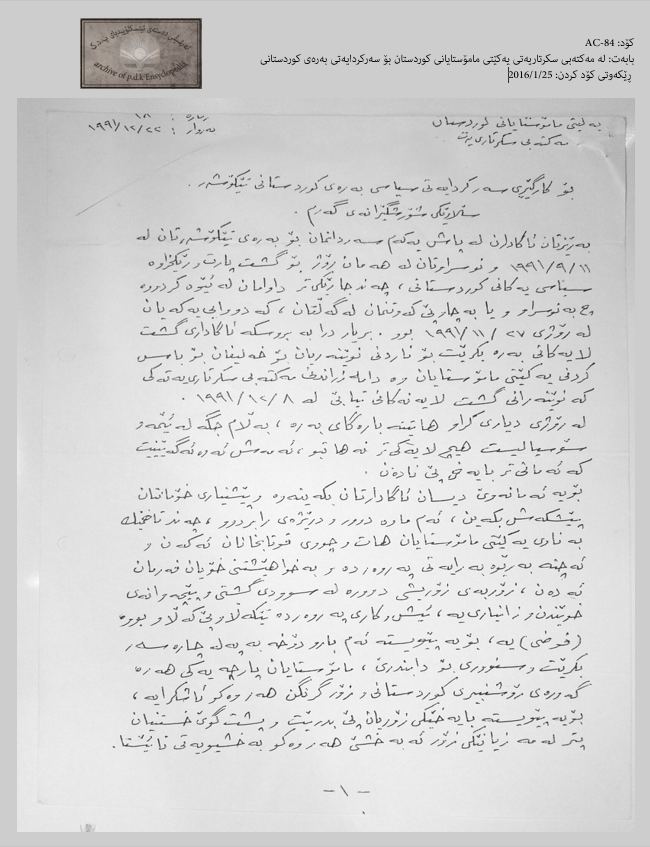 کۆد: AC-84
بابەت: لە مەکتەبی سکرتاریەتی یەکێتی مامۆستایانی کوردستان بۆ سەرکردایەتی بەرەی کوردستانی
ڕێکەوتی کۆد کردن: 2016/1/25
archive of p.d.k Encyclopedia
یەکێتی مامۆستایانی کوردستان
مەکتەبی سکرتاریەت
ژمارە : ١٨
بەروار : ١٩٩١/١٢/٢٢
بۆ کارگێڕی سەرکردایەتی سیاسی بەرەی کوردستانی تێکۆشەر .
سڵاوێکی شۆڕشگێڕانەی گەرم .
بەڕێزتان ئاگادارن لە پاش یەکەم سەردانمان بۆ بەرەی تێکۆشەرتان لە
١٩٩١/٩/١١ و نوسراوتان لە هەمان ڕۆژ بۆ گشت پارت و ڕێکخراوە
سیاسی یەکانی کوردستانی ، چەند جارێکی تر داوامان لە ئێوە کردووە
چ بە نوسراو و یا بە چاوپێکەوتنمان لەگەڵتان ، کە دووایی یەکەیان
لە ڕۆژی ٢٧ / ١١ / ١٩٩١ بوو . بڕیار درا بە بروسکە ئاگاداری گشت
لایەکانی بەرە بکرێت بۆ ناردنی نوێنەریان بۆ خەلیفان بۆ باسی
کردنی یەکێتی مامۆستایان وە دامەزراندنی مەکتەبی سکرتاریەتەکەی
کە نوێنەرانی گشت لایەنەکانی تیابێ لە ٨ / ١٢ / ١٩٩١ .
لە ڕۆژی دیاری کراو هاتینە بارەگای بەرە ، بەڵام جگە لە ئێمە و
سۆسیالیست هیچ لایەکی تر نەهاتبو ، ئەمەش ئەوە ئەگەیێنێت
کە ئەمانی تر بایەخی پێ نادەن .
بۆیە ئەمانەوێ دیسان ئاگادارتان بکەینەوە و پێشنیاری خۆمانتان
پێشکەش بکەین ، ئەم ماوە دوور و درێژەی ڕابردوو ، چەند تاقمێک
بە ناوی یەکێتی مامۆستایان هات و چووی قوتابخانان ئەکەن و
ئەچنە بەڕێوەبەرایەتی پەروەردە و بە خواهێشتنی خۆیان فەرمان
ئەدەن ، زۆربەی زۆریشی دوورە لە سوودی گشتی و پێچەوانەی
خوێندن و زانیاری یە ، ئیش و کاری پەروەردە تێکەڵاوپێکەڵاو بووە
(فوضی) یە ، بۆیە پێویستە ئەم بارودۆخە بە پەلە چارەسەر
بکرێت و سنووری بۆ دابندرێ ، مامۆستایان پارچەیەکی هەرە
گەورەی ڕۆشنبیری کوردستانی و زۆر گرنگن هەروەکو ئاشکرایە ،
بۆیە پێویستە بایەخێکی زۆریان پێ بدرێت و پشت گوێ خستنیان
پتر لەمە زیانێکی زۆر ئەبەخشێ هەروەکو بەخشیویەتی تا ئێستا .
- ١ -